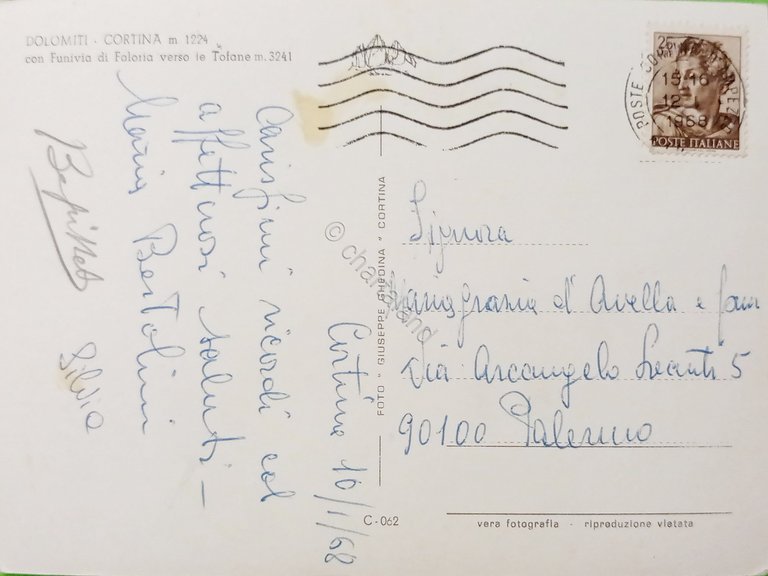 DOLOMITI - CORTINA m 1224
con Funivia di Faloria verso le Tofane m. 3241
Cortina 10/1/68
Carissimi ricordi col
affettuosi saluti -
Maria Bertolini
Silvia
FOTO " GIUSEPPE GHEDINA " CORTINA
© chartaland
25
POSTE CORTINA D'AMPEZZO
15-16
12
1968
POSTE ITALIANE
Signora
Mariagrazia d'Avella e fam
Via Arcangelo Leanti 5
90100 Palermo
C - 062
vera fotografia - riproduzione vietata